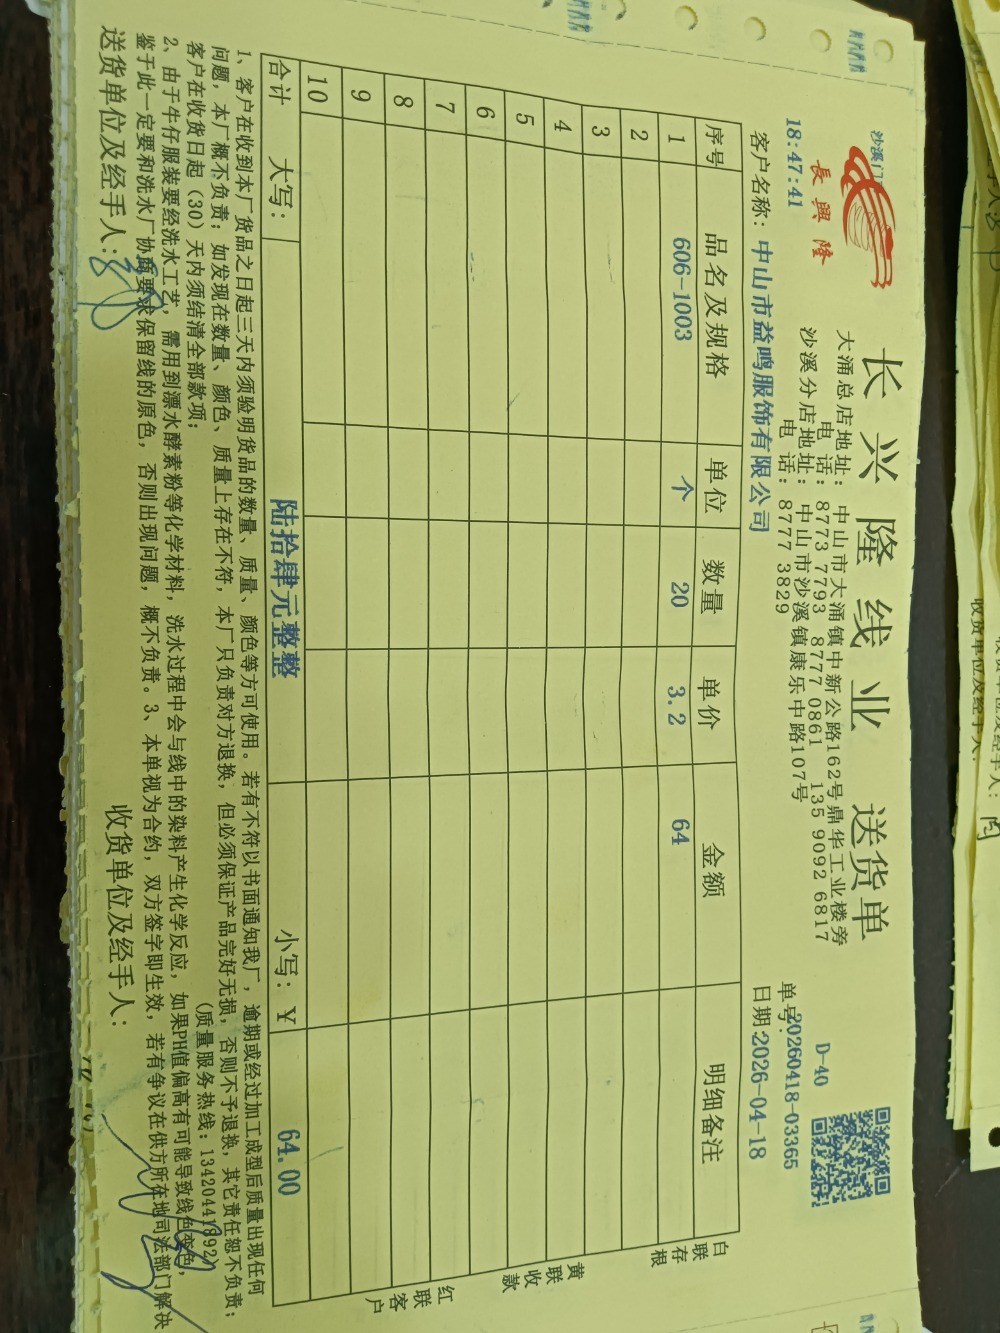 沙溪门
長興隆
18:47:41
长兴隆线业 送货单
大涌总店地址：中山市大涌镇中新公路162号鼎华工业楼旁
电 话：8773 7793 8777 0861 135 9092 6817
沙溪分店地址：中山市沙溪镇康乐中路107号
电 话：8777 3829
D-40
单号：20260418-03365
客户名称：中山市益鸣服饰有限公司
日期：2026-04-18
序号 品名及规格 单位 数量 单价 金额 明细备注
1 606-1003 个 20 3.2 64
2
3
4
5
6
7
8
9
10
合计 大写：陆拾肆元整整 小写：¥ 64.00
白联存根
黄联收款
红联客户
1、客户在收到本厂货品之日起三天内须验明货品的数量、质量、颜色等方可使用。若有不符以书面通知我厂，逾期或经过加工成型后质量出现任何
问题，本厂概不负责；如发现在数量、颜色、质量上存在不符，本厂只负责对方退换，但必须保证产品完好无损，否则不予退换，其它责任恕不负责；
客户在收货日起（30）天内须结清全部款项； （质量服务热线：13420441892）
2、由于牛仔服装要经洗水工艺，需用到漂水酵素粉等化学材料，洗水过程中会与线中的染料产生化学反应，如果PH值偏高有可能导致线色变色，
鉴于此一定要和洗水厂协商要求保留线的原色，否则出现问题，概不负责。3、本单视为合约，双方签字即生效，若有争议在供方所在地司法部门解决
送货单位及经手人：
收货单位及经手人：
收货单位及经手人：